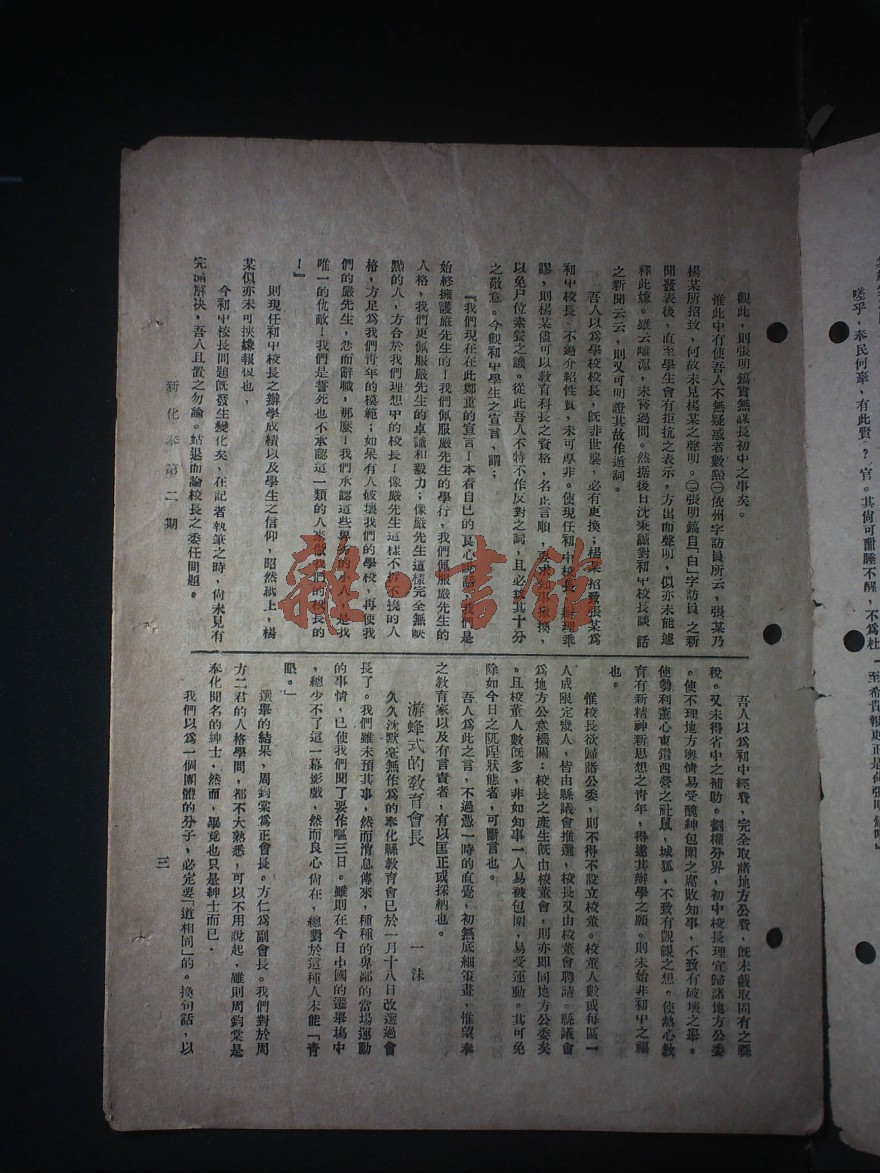 觀此，則張明鎬實無謀長初中之事矣。
惟此中有使吾人不無疑惑者數點㊀依州字訪員所云，張某乃
楊某所招致，何故未見楊某之聲明。㊁張明鎬自「白」字訪員之新
聞發表後，直至學生會有拒抗之表示，方出而聲明，似亦未能遽
釋此嫌。雖云離滬，未嘗過問。然据後日沈秉誠對初中校長談話
之新聞云云，則又可明證其故作遁詞。
吾人以為學校校長，既非世襲，必有更換；楊某招致張某為
初中校長，不過介紹性質，未可厚非。使現任初中校長，辦理乖
謬，則楊某儘可以教育科長之資格，名正言順，要求知事撤換，
以免尸位素餐之譏。從此吾人不特不作反對之詞，且必致其十分
之敬意。今觀初中學生之宣言，謂；
『我們現在在此鄭重的宣言！本着自己的良心
始終擁護嚴先生的！我們佩服嚴先生的學行，我們佩服嚴先生的
人格，我們更佩服嚴先生的卓識和毅力；像嚴先生這樣完全無缺
點的人，方合於我們理想中的校長！像嚴先生這樣不折不撓的人
格，方足為我們青年的模範；如果有人破壞我們的學校，再使我
們的嚴先生，憤而辭職，那麼！我們承認這些卑劣的小人，是我
唯一的仇敵！我們是誓死也不承認這一類的人來做我們的校長的
！』
則現任初中校長之辦學成績以及學生之信仰，昭然紙上，楊
某似亦未可挾嫌報似也，
今初中校長問題既發生變化矣，在記者執筆之時，尙未見有
完滿解决，吾人且置之勿論。姑退而論校長之委任問題。
新化奉第二期
吾人以為初中經費，完全取諸地方公費，既未截取固有之縣
稅。又未得省中之補助。劃權分界，初中校長理宜歸諸地方公委
。使不理地方輿情易受醜紳包圍之腐敗知事，不致有破壞之舉。
使勢利薰心東鑽西營之社鼠，城狐，不致有覬覦之想。使熱心教
育有新精神新思想之青年，得遂其辦學之願。則未始非初中之福
也。
惟校長欲歸諸公委，則不得不設立校董。校董人數或每區一
人或限定幾人，皆由縣議會推選，校長又由校董會聘請。縣議會
為地方公意機關；校長之產生既由校董會，則亦卽同地方公委矣
。且校董人數既多，非如知事一人易被包圍，易受運動。其可免
除如今日之阢隉狀態者，可斷言也。
吾人為此之言，不過憑一時的直覺，初無底細策畫，惟望奉
之教育家以及有言責者，有以匡正或採納也。
游蜂式的教育會長
一沫
久久沈默毫無作為的奉化縣教育會已於一月十八日改選過會
長了。我們雖未預其事，然而消息傳來，種種的卑鄙的當場運動
的事情，已使我們聞了要作嘔三日。雖則在今日中國的選舉塲中
，總少不了這一幕影戲，然而良心尙在，總對於這種人未能「青
眼。」
選舉的結果，周鈞棠為正會長。方仁為副會長。我們對於周
方二君的人格學問，都不大熟悉，可以不用說起，雖則周鈞棠是
奉化聞名的紳士，然而，畢竟也只是紳士而已，
我們以為一個團體的分子，必定要「道相同」的。換句話，以
三
嗟乎，奉民何辜，有此賢
官。其尙可酣睡不醒，不為杜
雜·書館